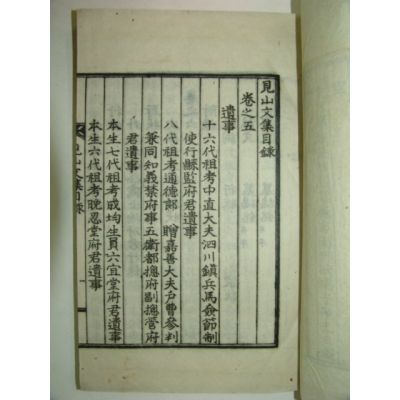 見山文集目錄
卷之五
遺事
十六代祖考中直大夫泗川鎮兵馬僉節制
使行縣監府君遺事
八代祖考通德郎 贈嘉善大夫戶曹參判
兼同知義禁府事五衛都摠府副摠管府
君遺事
本生七代祖考成均生員六宜堂府君遺事
本生六代祖考晚忍堂府君遺事
見山文集目錄
一